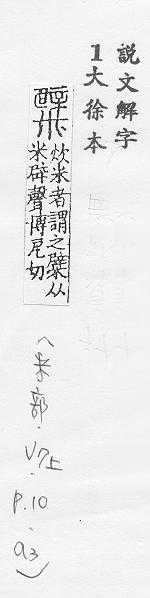 説文解字
1大徐本
糪
炊米者謂之糪从
米辟聲博戹切
(米部·V7上·p.10·a3)